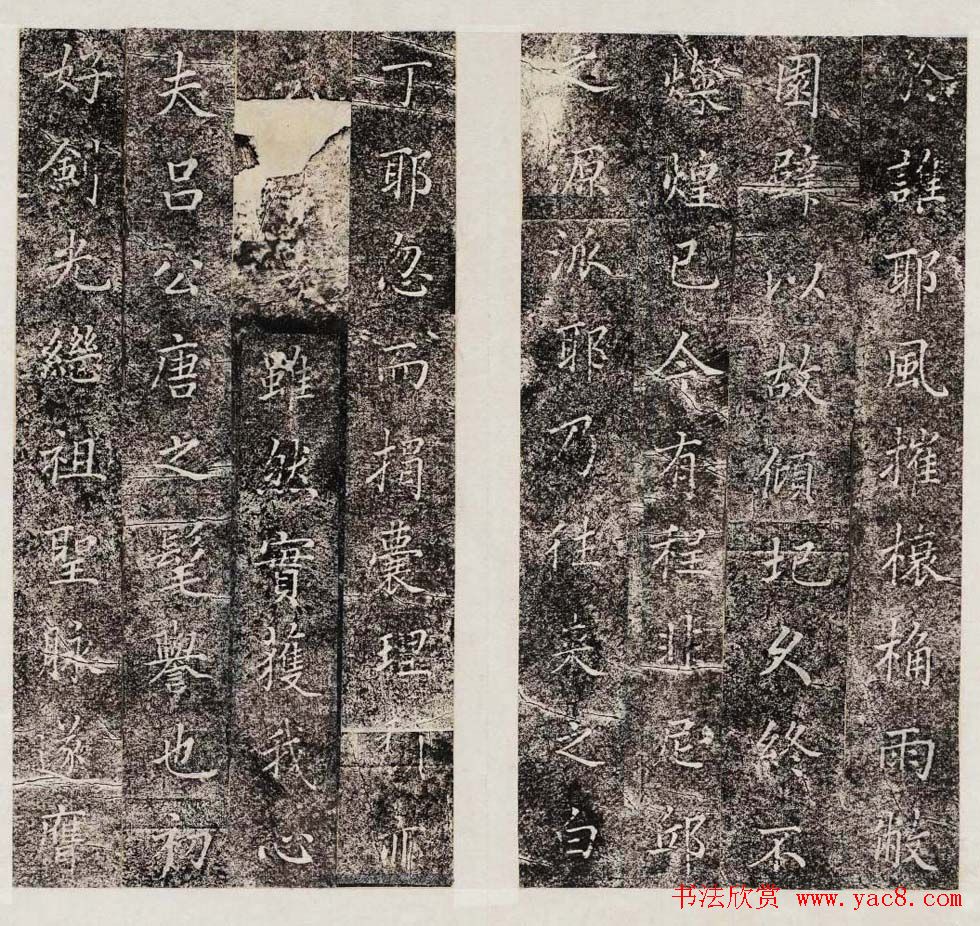 於誰耶風摧榱桷雨敝
園壁以故傾圮久終不
燦煌已今有程非尼邱
之源派耶乃往來之白
丁耶忽而捐囊理亦
雖然實獲我心
夫呂公唐之髦譽也初
好劍光繼祖聖脉遂膺
书法欣赏 www.yac8.com